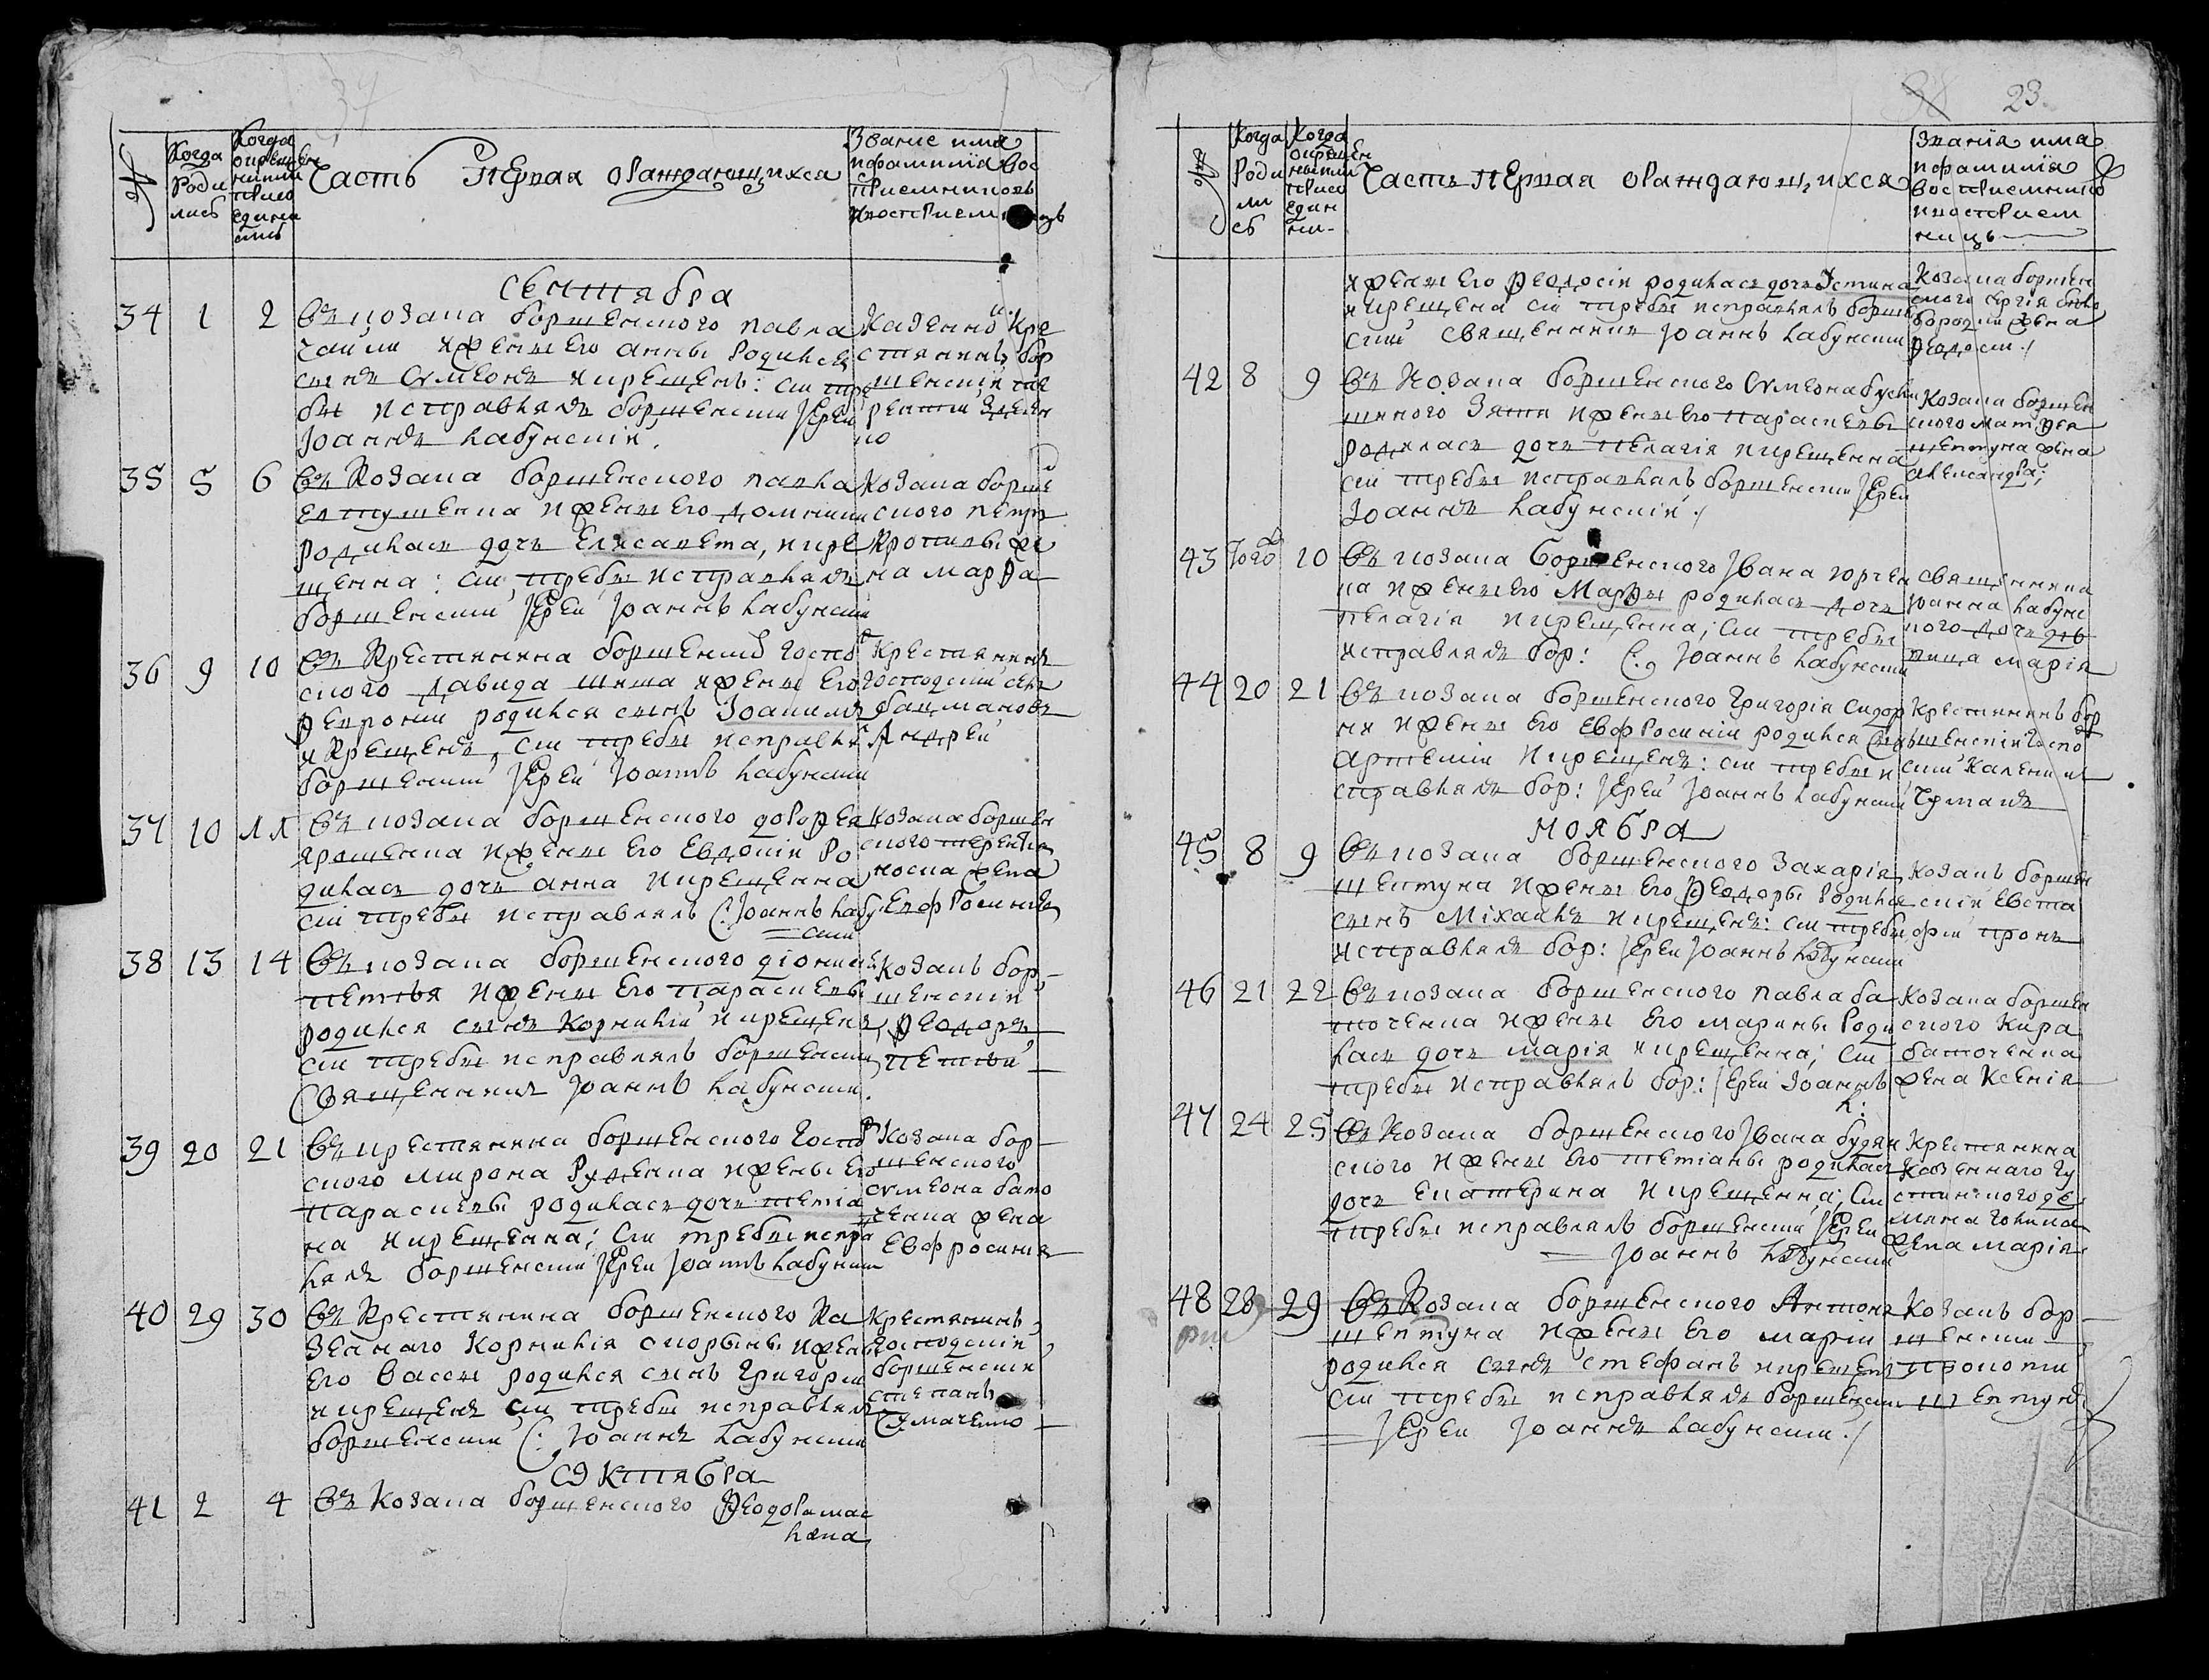 34
№
Когда
Роди
лись
Когда
окрещен
ными
присо
едине
ись
Часть Первая о Раждающихся
Звание имя
и фамилиïа вос
приемниковъ
и восприем
Сентября
34 1 2 Въ козака борщенского павла
чайки и жены его анны Родился
сынъ Сѵмеонъ и крещенъ: сии тре
бы исправлялъ борщенский Иерей
Иоаннъ Лабунский.
Казенно Кре
стянинъ бор
щенский
35 5 6 Въ Козака борщенского павла
и жены его домники
родилась дочь Елисавета, и кре
щенна: сии требы исправлялъ
борщенский Иерей Иоаннъ Лабунский
Козака борще
ского петра
же
на марѳа
36 9 10 Въ Крестянина борщенско госпо
ского давида и жены его
ѳевронии родился сынъ Иоакимъ
и Крещенъ, сии требы исправлялъ
борщенский Иерей Иоаннъ Лабунский
Крестянинъ
господский
Андрей
37 10 11 Въ козака борщенского дороѳея
ярошенка и жены его Евдокіи Ро
дилась дочь анна и крещенна
сии требы исправлялъ С: Иоаннъ Лабу
ский
Козака борщен
ского терентія
носка жена
Евфросинія
38 13 14 Въ козака борщенского діониси
петлѣя и жены его параскевы
родился сынъ Корнилій и крещенъ
сии требы исправлялъ борщенский
Священникъ Иоаннъ Лабунский.
Козакъ бор
щенский
ѳеодоръ
39 20 21 Въ крестянина борщенского Госпо
ского мирона Руденка и жены его
параскевы родилась дочь тетія
на и крещенна; Сии требы испра
лялъ борщенский Иерей Иоаннъ Лабунский
Козака бор
щенского
сѵмеона бато
ченка жена
Евфросинія
40 29 30 Въ Крестянина борщенского Ка
зеннаго Корнилія скорыны и жены
его Вассы родился сынъ Григорий
и крещенъ сии требы исправлялъ
борщенский С: Иоаннъ Лабунский
Крестянинъ
Господский
борщенский
степанъ
Октября
41 2 4 Въ Козака борщенского ѳеодора мас
ляка
23
№
Когда
Роди
ли
сь
Когда
окрещен
ными
присо
един
ни-
Часть Первая о Раждающихся
Званія имя
и фамилиïа
восприемнико
и восприем
ницъ
и жены его ѳеодосіи родилась дочь Устина
и крещена сіи требы исправлялъ борщен
ский Священникъ Иоаннъ Лабунский
Козака борщен
ского сергія
бороды жена
ѳеодосия
42 8 9 Въ Козака борщенского Сѵмеона
Зятя и жены его параскевы
родилась дочь пелагія и крещенна
сии требы исправлялъ борщенский Иерей
Иоаннъ Лабунский
Козака борщен
ского матѳея
шептуна жена
александра;
43 того 10 Въ козака борщенского Ивана юрчен
ка и жены его Марѳы родилась дочь
пелагія и крещенна; Сии требы
исправлялъ бор: С. Иоаннъ Лабунский
священника
Иоанна Лабунс
кого дочь дѣ
вица марія
44 20 21 Въ козака борщенского Григорія сидор
ня и жены его Евфросиніи родился сынъ
артемій и крещенъ: сии требы и
справлялъ бор: Иерей Иоаннъ Лабунский
Крестянинъ бор
щенский госпо
ский Каленикъ
45 8 9 Ноября
Въ козака борщенского Захарія
шептуна и жены его ѳеодоры родился
сынъ Міхаилъ и крещенъ: сии требы
исправлялъ бор: Иерей Иоаннъ Лабунский
Козакъ борщен
ский Евста
фий
46 21 22 Въ козака борщенского павла ба
точенка и жены его марины Роди
лась дочь марія и крещенна; сии
требы исправлялъ бор: Иерей Иоаннъ
Л:
Козака борщен
ского Кира
баточенка
жена Ксенія
47 24 25 Въ Козака борщенского Ивана будян
ского и жены его тетіаны родилась
дочь Екатерина и крещенна; Сии
требы исправлялъ борщенский Иерей
Иоаннъ Лабунский
Крестянина
Казеннаго Гу
стинского де
мяна
жена марія
48 28 29 Въ Козака борщенского Антона
шептуна и жены его марии
родился сынъ стефанъ и крещенъ
сии требы исправлялъ борщенский
Иерей Иоаннъ Лабунский.
Козакъ бор
щенский
прокопий
шептунъ